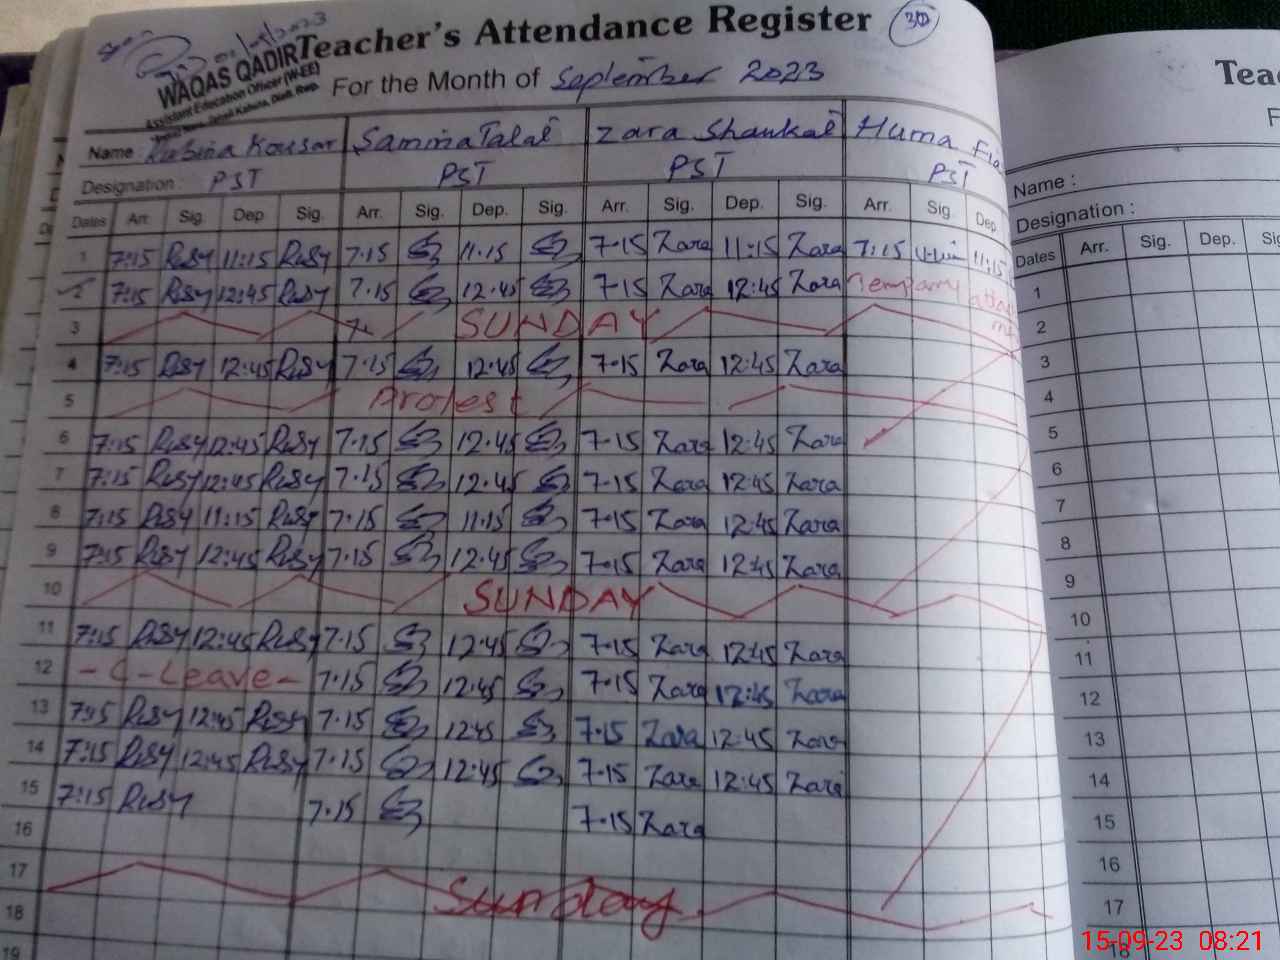 30
Teacher's Attendance Register
WAQAS QADIR
Assistant Education Officer (W-EE)
For the Month of September 2023
Name Rubina Kousar Samina Talat Zara Shaukat Huma
Designation : PST PST PST PST
Dates Arr. Sig. Dep. Sig. Arr. Sig. Dep. Sig. Arr. Sig. Dep. Sig. Arr. Sig. Dep.
1 7:15 RuBy 11:15 RuBy 7.15 11.15 7-15 Zara 11:15 Zara 7:15 11:15
2 7:15 RuBy 12:45 RuBy 7.15 12.45 7-15 Zara 12:45 Zara Temparry
3 SUNDAY
4 7:15 RuBy 12:45 RuBy 7.15 12.45 7-15 Zara 12:45 Zara
5 Protest
6 7:15 RuBy 12:45 RuBy 7.15 12.45 7-15 Zara 12:45 Zara
7 7:15 RuBy 12:45 RuBy 7.15 12.45 7-15 Zara 12:45 Zara
8 7:15 RuBy 11:15 RuBy 7.15 11.15 7-15 Zara 12:45 Zara
9 7:15 RuBy 12:45 RuBy 7.15 12.45 7-15 Zara 12:45 Zara
10 SUNDAY
11 7:15 RuBy 12:45 RuBy 7.15 12.45 7-15 Zara 12:45 Zara
12 - C - Leave - 7.15 12.45 7-15 Zara 12:45 Zara
13 7:15 RuBy 12:45 RuBy 7.15 12.45 7-15 Zara 12:45 Zara
14 7:15 RuBy 12:45 RuBy 7.15 12.45 7-15 Zara 12:45 Zara
15 7:15 RuBy 7.15 7-15 Zara
16
17 Sunday
18
19
Name :
Designation :
Dates Arr. Sig. Dep.
1
2
3
4
5
6
7
8
9
10
11
12
13
14
15
16
17
18
15-09-23 08:21